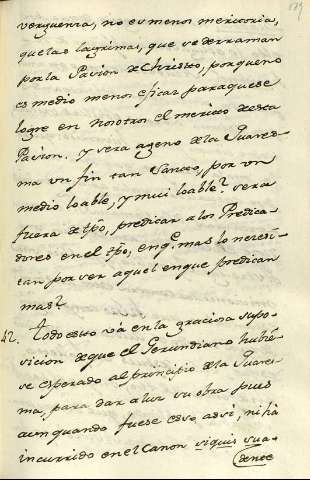 verguenza, no es menos meritoria,
que las lagrimas, que se derraman
por la Pasion de Christo, porque no
es medio menos eficaz para que se
logre en nosotros el merito de esta
Pasion. y sera ageno de la Quares
ma un fin tan Santo, por un
medio loable, y mui loable? sera
fuera de tpô, predicar a los Predica
dores en el tpô, en q.e mas lo necesi
tan por ser aquel en que predican
mas?
42. Todo esto vâ en la graciosa supo
sicion de que el Gerundiano hubie
se esperado al principio de la Quares
ma, para dar a luz su obra pues
aun quando fuese eso asi, ni hâ
incurrido en el Canon siquis sua
dente